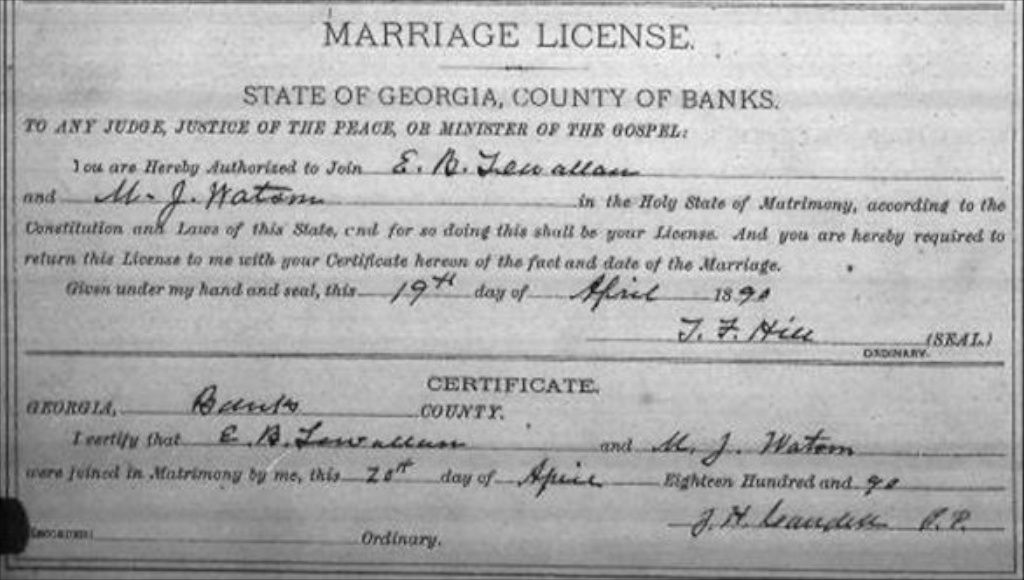 MARRIAGE LICENSE.
STATE OF GEORGIA, COUNTY OF BANKS.
TO ANY JUDGE, JUSTICE OF THE PEACE, OR MINISTER OF THE GOSPEL:
You are Hereby Authorized to Join E. B. Lewallan
and M. J. Watson in the Holy State of Matrimony, according to the
Constitution and Laws of this State, and for so doing this shall be your License. And you are hereby required to
return this License to me with your Certificate hereon of the fact and date of the Marriage.
Given under my hand and seal, this 19th day of April 1890
T. F. Hill (SEAL)
ORDINARY.
CERTIFICATE.
GEORGIA, Banks COUNTY.
I certify that E. B. Lewallan and M. J. Watson
were joined in Matrimony by me, this 20th day of April Eighteen Hundred and 90
J. H.
RECORDED Ordinary.